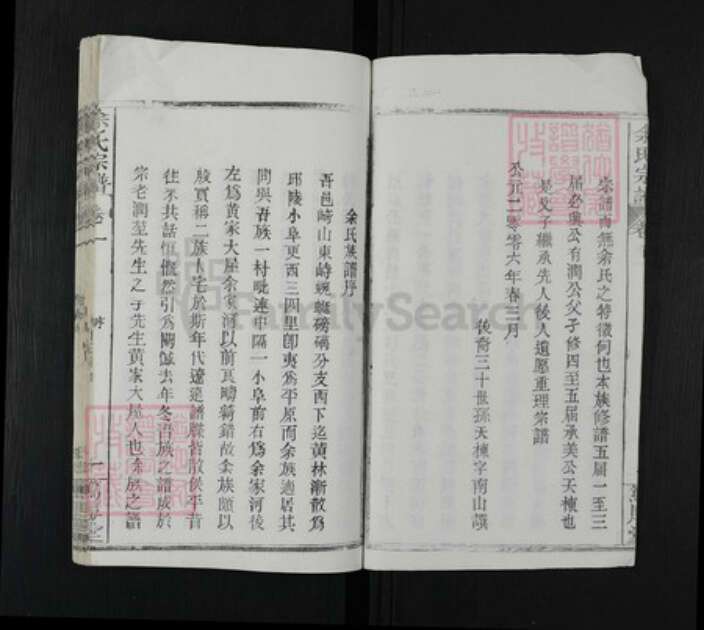 宗譜而無余氏之特徵何也本族修譜五屆一至三
屆必興公有潤公父子修四至五屆承美公天棟也
是父子繼承先人後人遺愿重理宗譜
公元二零零六年春三月
後裔三十世孫天棟字南山譔
余氏族譜序
吾邑崎山東峙蜿蜒磅礴分支西下迄黃林漸散為
邱陵小阜更西三四里卽夷為平原而余族適居其
間與吾族一村毗連中隔一小阜前右為余家河後
左為黃家大屋余家河以前瓦疇綺錯故余族願以
殷實稱二族卜宅於斯年代遼遠譜牒皆散佚平昔
往來共話恒慨然引為闕憾去年冬吾族之譜成於
宗老潤荃先生之手先生黃家大屋人也余族之譜
余氏宗譜
卷一
序
一
余氏宗譜
FamilySearch